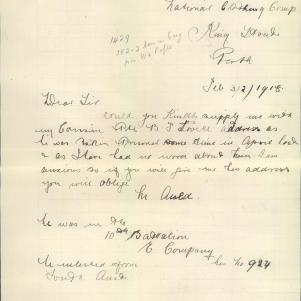 National Clothing Coup
King Street
Perth
1429
Feb 3/2/1918
Dear Sir
Could you Kindly supply me with
my Cousin Pte B J Lovell address as
he was taken Prisoner some time in April last
& as I have had no word about him I am
anxious so if you will give me his address
you will oblige
Mr Auld
he was in the
10th Battalion
E Company
her No 924
he enlisted from
South Aust